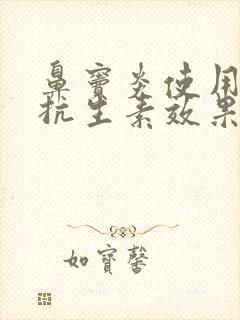 鼻窦炎使用
抗生素效果
如寶馨